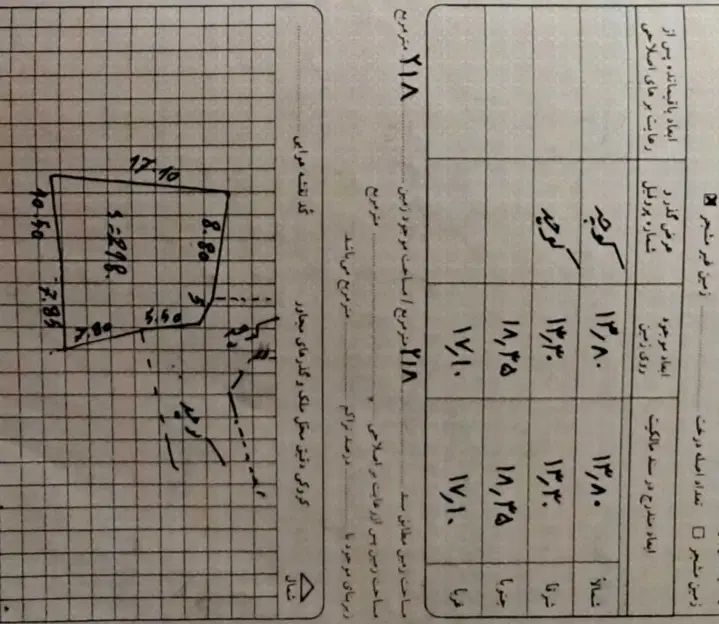 زمین مشجر □ تعداد اصله درخت .......... زمین غیر مشجر ☒
ابعاد مندرج در سند مالکیت
ابعاد موجود روی زمین
عرض گذر و شماره پروفیل
ابعاد باقیمانده پس از رعایت بر های اصلاحی
شمالاً ۱۳٫۸۰ ۱۳٫۸۰ کوچه
شرقاً ۱۳٫۳۰ ۱۳٫۳۰ کوچه
جنوباً ۱۸٫۳۵ ۱۸٫۳۵
غرباً ۱۷٫۱۰ ۱۷٫۱۰
مساحت زمین مطابق سند ۲۱۸ مترمربع / مساحت موجود زمین ۲۱۸ مترمربع
مساحت زمین پس از رعایت بر اصلاحی .......... مترمربع
زیربنای موجود با .......... درصد تراکم .......... مترمربع می‌باشد
شمال
کروکی دقیق محل ملک و گذرهای مجاور
کد نقشه هوایی ..........
17.10
8.80
5
5.50
7.80
7.85
10.50
S=218
کوچه